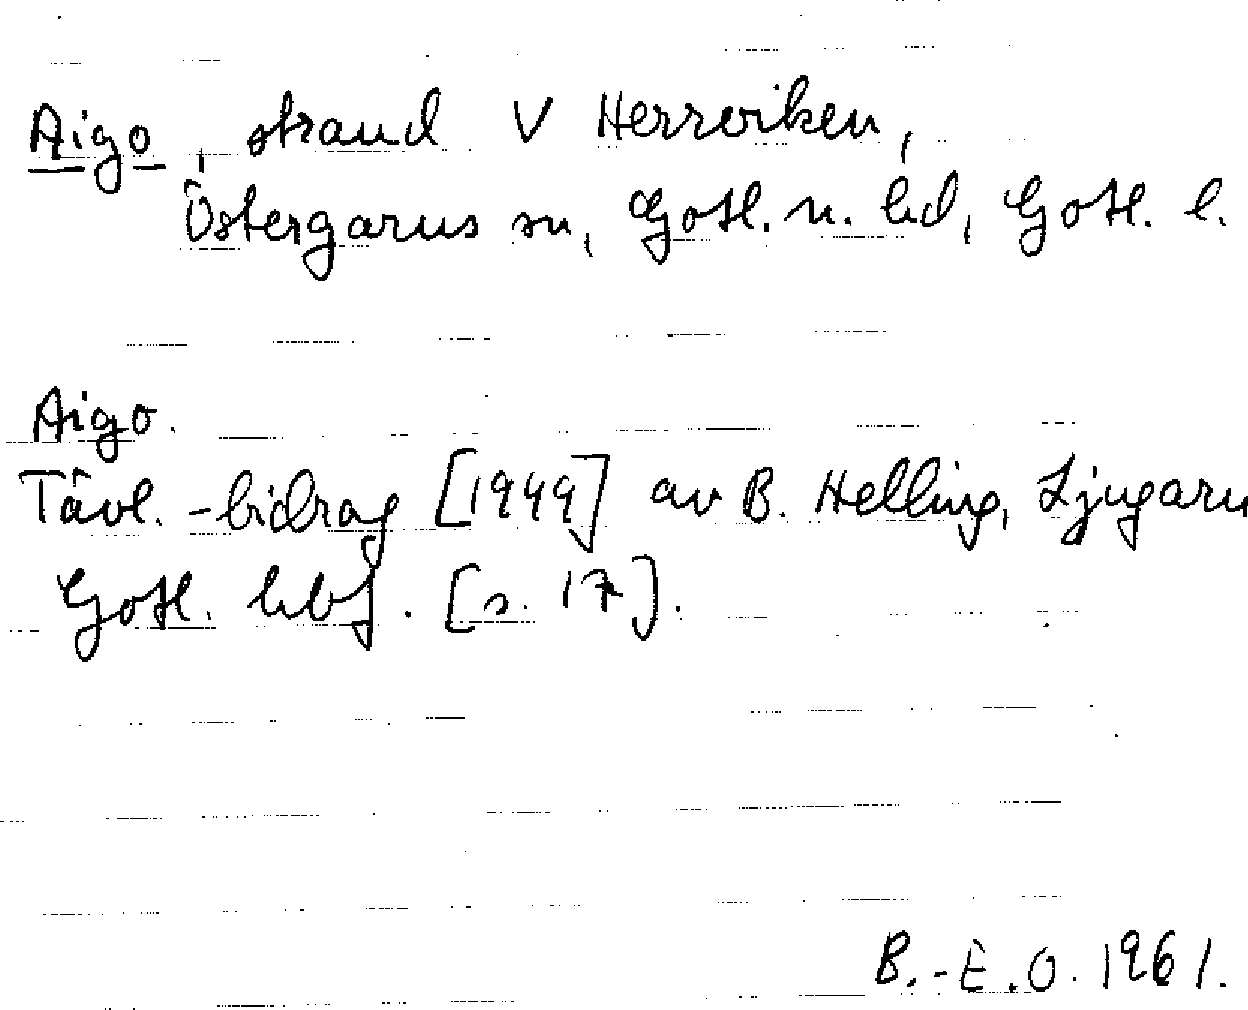 Aigo, strand V Herrviken,
Östergarns sn, Gotl. n. hd, Gotl. l.
Aigo.
Tävl.-bidrag [1949] av B. Helling, Ljugarn
Gotl. hbf. [s. 17].
B.-E.O. 1961.